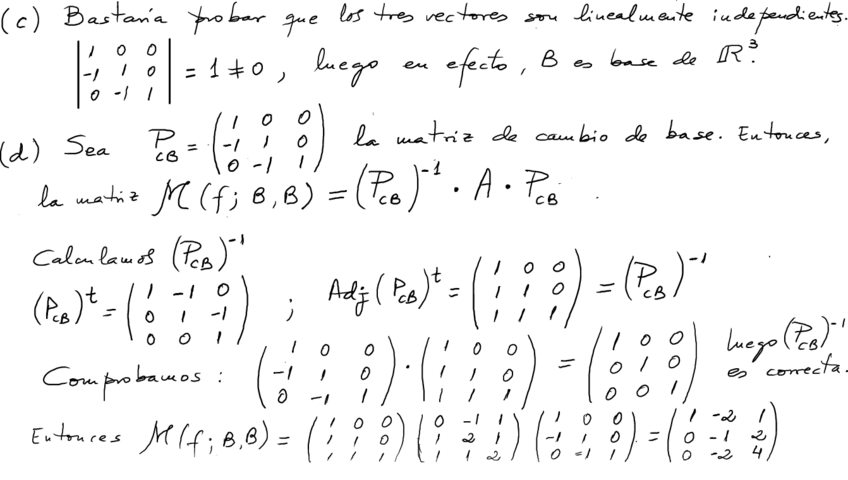 (c) Bastaría probar que los tres vectores son linealmente independientes.
| 1 0 0 ; -1 1 0 ; 0 -1 1 | = 1 ≠ 0, luego en efecto, B es base de ℝ³.
(d) Sea P_CB = ( 1 0 0 ; -1 1 0 ; 0 -1 1 ) la matriz de cambio de base. Entonces,
la matriz M(f; B, B) = (P_CB)⁻¹ · A · P_CB .
Calculamos (P_CB)⁻¹
(P_CB)ᵗ = ( 1 -1 0 ; 0 1 -1 ; 0 0 1 ) ; Adj(P_CB)ᵗ = ( 1 0 0 ; 1 1 0 ; 1 1 1 ) = (P_CB)⁻¹
Comprobamos : ( 1 0 0 ; -1 1 0 ; 0 -1 1 ) · ( 1 0 0 ; 1 1 0 ; 1 1 1 ) = ( 1 0 0 ; 0 1 0 ; 0 0 1 ) luego (P_CB)⁻¹ es correcta.
Entonces M(f; B, B) = ( 1 0 0 ; 1 1 0 ; 1 1 1 ) ( 0 -1 1 ; 1 2 1 ; 1 1 2 ) ( 1 0 0 ; -1 1 0 ; 0 -1 1 ) = ( 1 -2 1 ; 0 -1 2 ; 0 -2 4 )